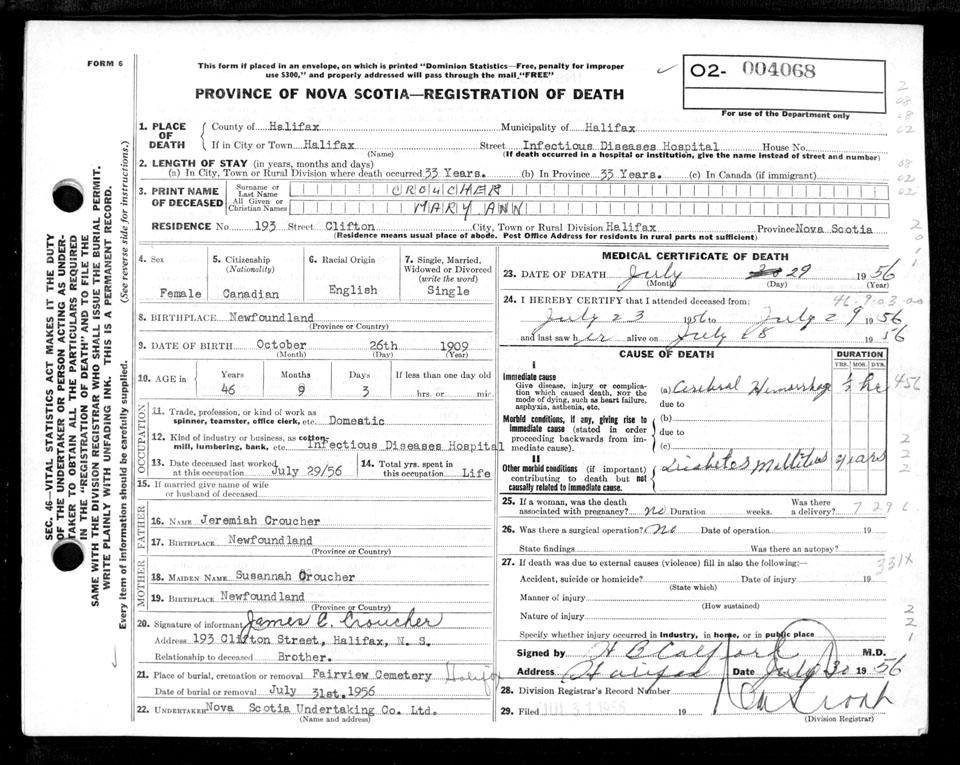 FORM 6
This form if placed in an envelope, on which is printed "Dominion Statistics—Free, penalty for improper
use $300," and properly addressed will pass through the mail "FREE"
O2- 004068
For use of the Department only
PROVINCE OF NOVA SCOTIA—REGISTRATION OF DEATH
SEC. 46—VITAL STATISTICS ACT MAKES IT THE DUTY
OF THE UNDERTAKER OR PERSON ACTING AS UNDER-
TAKER TO OBTAIN ALL THE PARTICULARS REQUIRED
IN THE "REGISTRATION OF DEATH" AND TO FILE THE
SAME WITH THE DIVISION REGISTRAR WHO SHALL ISSUE THE BURIAL PERMIT.
WRITE PLAINLY WITH UNFADING INK. THIS IS A PERMANENT RECORD.
Every item of information should be carefully supplied. (See reverse side for instructions.)
1. PLACE OF DEATH County of Halifax Municipality of Halifax
If in City or Town Halifax Street Infectious Diseases Hospital House No.
(Name) (If death occurred in a hospital or institution, give the name instead of street and number)
2. LENGTH OF STAY (in years, months and days)
(a) In City, Town or Rural Division where death occurred 33 Years. (b) In Province 33 Years. (c) In Canada (if immigrant)
3. PRINT NAME OF DECEASED Surname or Last Name CROUCHER
All Given or Christian Names MARY ANN
RESIDENCE No. 193 Street Clifton City, Town or Rural Division Halifax Province Nova Scotia
(Residence means usual place of abode. Post Office Address for residents in rural parts not sufficient)
4. Sex 5. Citizenship (Nationality) 6. Racial Origin 7. Single, Married, Widowed or Divorced (write the word)
Female Canadian English Single
8. BIRTHPLACE Newfoundland
(Province or Country)
9. DATE OF BIRTH October 26th 1909
(Month) (Day) (Year)
10. AGE in Years Months Days If less than one day old
46 9 3 hrs. or min.
OCCUPATION
11. Trade, profession, or kind of work as
spinner, teamster, office clerk, etc. Domestic
12. Kind of industry or business, as cotton
mill, lumbering, bank, etc. Infectious Diseases Hospital
13. Date deceased last worked at this occupation July 29/56 14. Total yrs. spent in this occupation Life
15. If married give name of wife
or husband of deceased
FATHER
16. NAME Jeremiah Croucher
17. BIRTHPLACE Newfoundland
(Province or Country)
MOTHER
18. MAIDEN NAME Susannah Croucher
19. BIRTHPLACE Newfoundland
(Province or Country)
20. Signature of informant James C. Croucher
Address 193 Clifton Street, Halifax, N. S.
Relationship to deceased Brother.
21. Place of burial, cremation or removal Fairview Cemetery Halifax
Date of burial or removal July 31st. 1956
22. UNDERTAKER Nova Scotia Undertaking Co. Ltd.
(Name and address)
MEDICAL CERTIFICATE OF DEATH
23. DATE OF DEATH July 29 1956
(Month) (Day) (Year)
24. I HEREBY CERTIFY that I attended deceased from: 46-9-03-00
July 23 1956 to July 29 1956
and last saw her alive on July 28 1956
CAUSE OF DEATH DURATION
YRS. MOS. DYS.
I
Immediate cause
Give disease, injury or complica-
tion which caused death, NOT the
mode of dying, such as heart failure,
asphyxia, asthenia, etc.
(a) Cerebral Hemorrhage ½ hr 456
due to
Morbid conditions, if any, giving rise to
immediate cause (stated in order
proceeding backwards from im-
mediate cause).
(b)
due to
(c)
II
Other morbid conditions (if important)
contributing to death but not
causally related to immediate cause.
Diabetes Mellitus years
25. If a woman, was the death Was there
associated with pregnancy? no Duration weeks. a delivery?
26. Was there a surgical operation? No Date of operation 19
State findings Was there an autopsy?
27. If death was due to external causes (violence) fill in also the following:— 331X
Accident, suicide or homicide? Date of injury 19
(State which)
Manner of injury
(How sustained)
Nature of injury
Specify whether injury occurred in industry, in home, or in public place
Signed by H B Calford M.D.
Address Halifax Date July 30 1956
28. Division Registrar's Record Number
29. Filed JUL 31 1956 19
(Division Registrar)